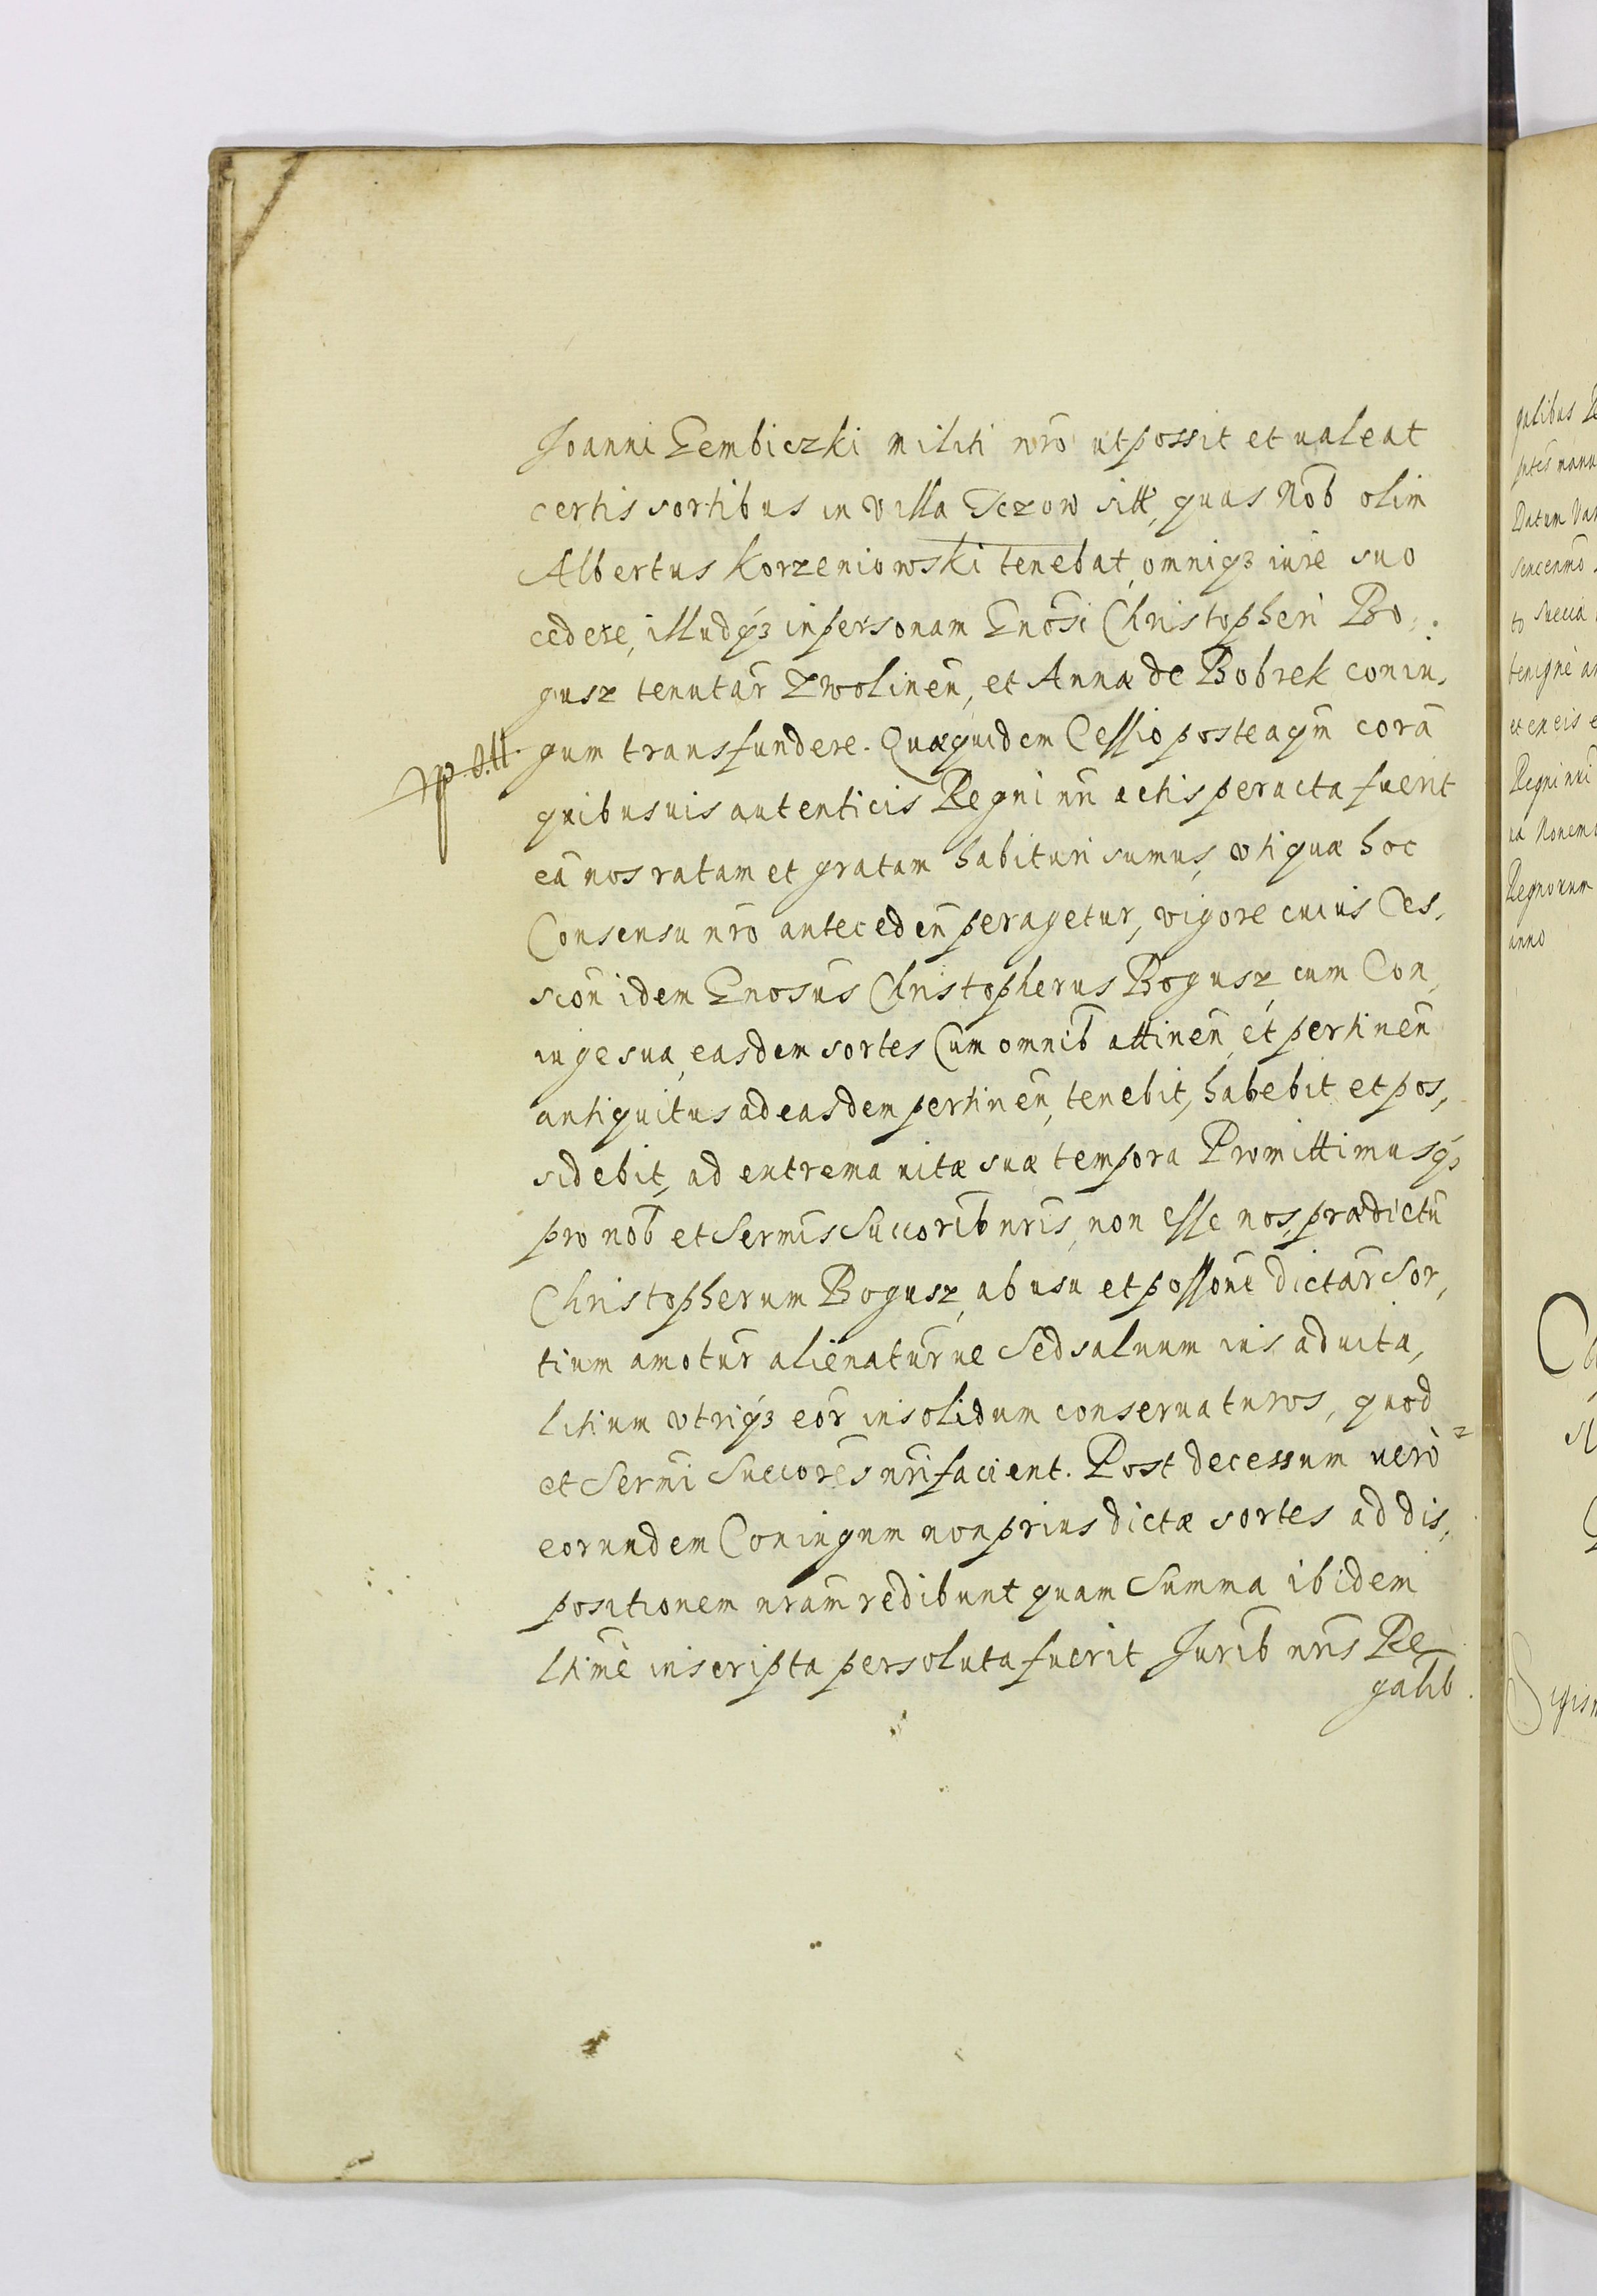 Joanni Gembiczki militi nr̃o ut possit et ualeat
certis sortibus in villa Tczow sitt, quas Nob̃ olim
Albertus Korzeniowski tenebat, omniqꝫ iure suo
cedere, illudqꝫ in personam Gnosi Christopheri Bo,
gusz tenutar̃ Zwolineñ, et Annæ de Bobrek coniu,
gum transfundere. Quæquidem Cessio posteaqm̃ corã
quibusuis autenticis Regni nri actis peracta fuerit
eã nos ratam et gratam habituri sumus, vti quæ hoc
Consensu nr̃o antecedeñ peragetur, vigore cuius Ces,
sion̄ idem Gnosus Christopherus Bogusz, cum Con,
iuge sua, easdem sortes Cum omnib̃ attineñ, et pertineñ
antiquitus ad easdem pertineñ, tenebit, habebit et pos,
sidebit, ad extrema uitæ suæ tempora Promittimusqꝫ
pro nob̃ et Sermis Succorib̃ nris, non esse nos, prædictũ
Christopherum Bogusz, ab usu et possone dictar̃ Sor,
tium amotur̃ alienatur̃ue Sed saluum ius aduita,
litium vtriqꝫ eor̃ insolidum conseruaturos, quod
et Sermi Succores nri facient. Post decessum uerò
eorundem Coniugum non prius dictæ sortes ad dis,
positionem nram̃ redibunt quam Summa ibidem
ltimè inscripta persoluta fuerit Jurib̃ nris Re
galib̃.
galibus
Datum
to Sueciæ
Regni nri
na Nonem
Regnorum
anno